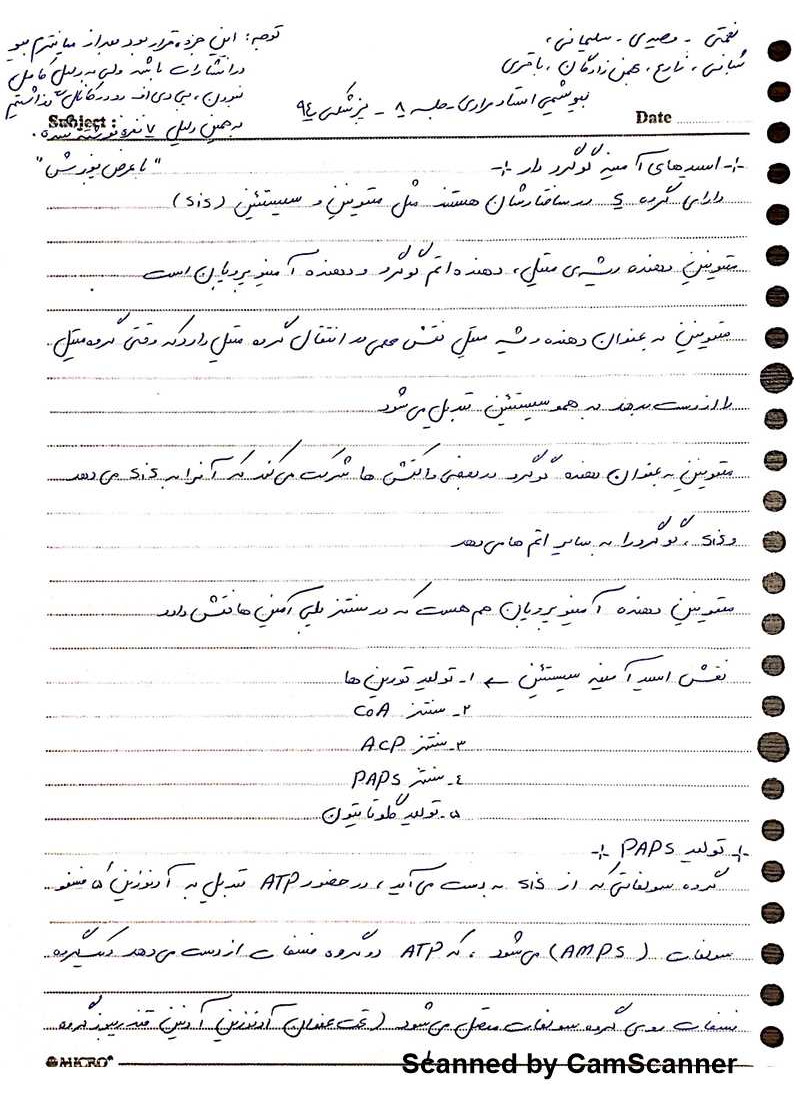 توجه: این جزوه قرار بود بعد از میانترم بیو
در انتشارات باشد ولی به دلیل کامل
نبودن، پی دی اف رو در کانال گذاشتیم
به همین دلیل ۷ نفره نوشته شده.
"با عرض پوزش"
نعمتی - نصیری - سلیمانی،
شبانی، زارع، محسن زادگان، باقری
بیوشیمی استاد مرادی - جلسه ۸ - پزشکی ۹۴
Subject:
Date
-:- اسیدهای آمینه گوگرد دار -:-
دارای گروه S در ساختارشان هستند مثل متیونین و سیستئین (sis)
متیونین دهنده ریشه‌ی متیل، دهنده اتم گوگرد و دهنده آمینو پروپان است
متیونین به عنوان دهنده ریشه متیل نقش مهمی در انتقال گروه متیل دارد که وقتی گروه متیل
را از دست بدهد به هموسیستئین تبدیل می‌شود
متیونین به عنوان دهنده گوگرد در بعضی واکنش ها شرکت می‌کند که آنرا به sis می‌دهد
و sis، گوگرد را به سایر اتم ها می‌دهد
متیونین دهنده آمینو پروپان هم هست که در سنتز پلی آمین ها نقش دارد
نقش اسید آمینه سیستئین ← ۱- تولید تورین ها
۲- سنتز CoA
۳- سنتز ACP
۴- سنتز PAPS
۵- تولید گلوتاتیون
-:- تولید PAPS -:-
گروه سولفاتی که از sis به دست می‌آید، در حضور ATP تبدیل به آدنوزین ۵ فسفو
سولفات (AMPS) می‌شود، که ATP دو گروه فسفات از دست می‌دهد و یک گروه
فسفات روی گروه سولفات متصل می‌شود (تحت عنوان آدنوزین آدنین قند ریبوز گروه
MICRO
Scanned by CamScanner